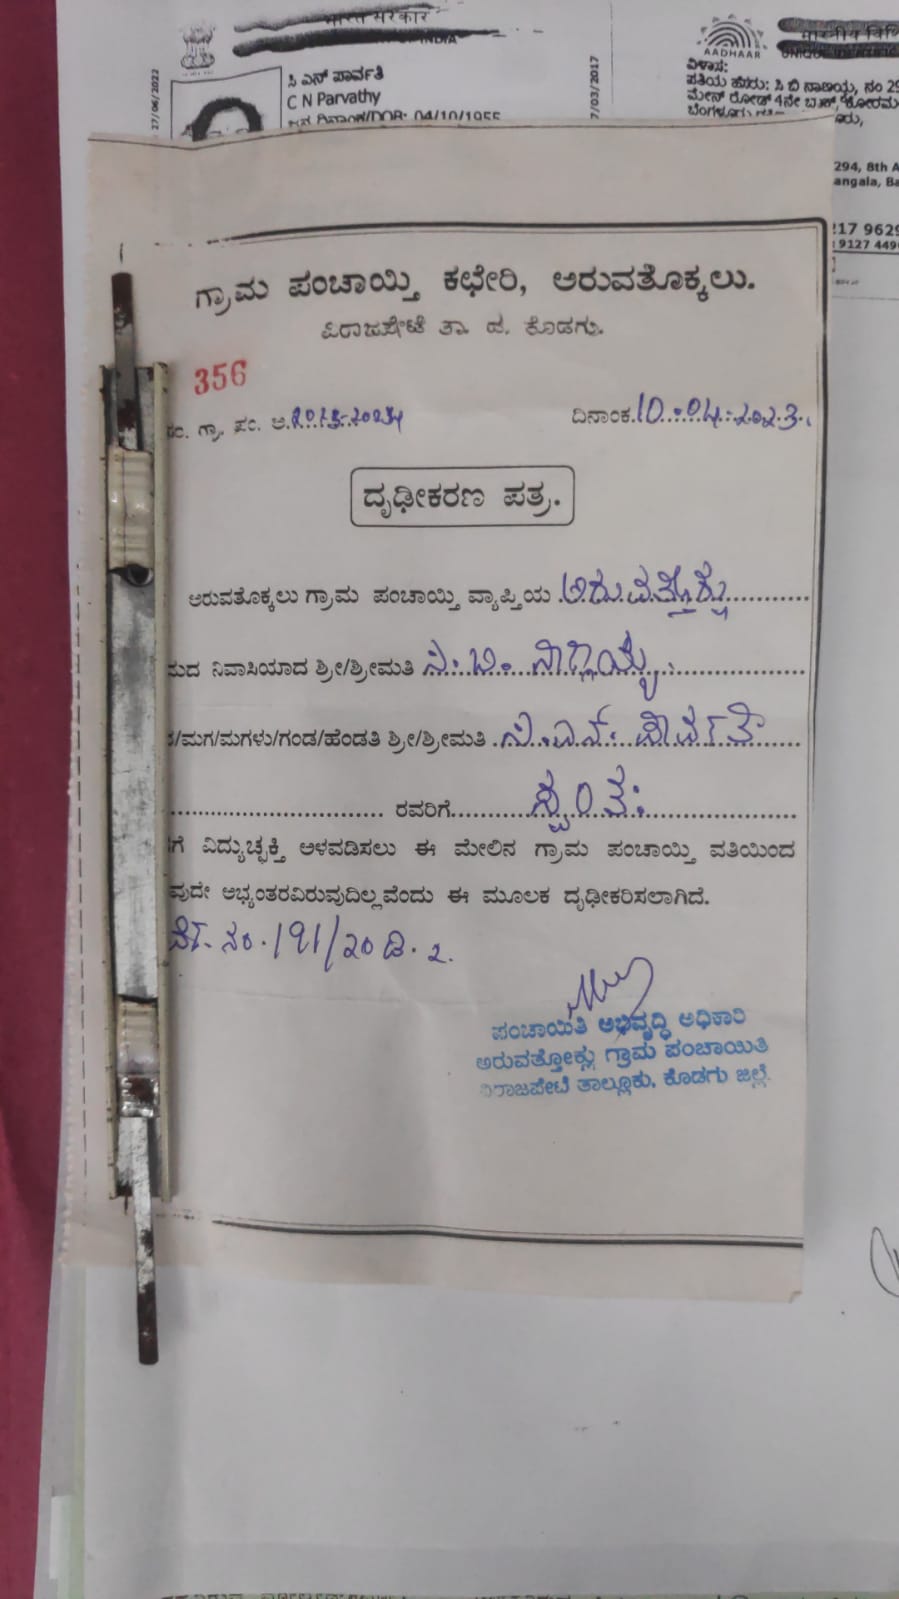 ಭಾರತ ಸರಕಾರ
INDIA
ಸಿ ಎನ್ ಪಾರ್ವತಿ
C N Parvathy
DOB: 04/10/1955
27/06/2022
7/03/2017
AADHAAR
ವಿಳಾಸ:
ಪತಿಯ ಹೆಸರು: ಸಿ ಬಿ ನಾಣಯ್ಯ, ನಂ 29
ಮೇನ್ ರೋಡ್ 4ನೇ ಬ್ಲಾಕ್, ಕೋರಮ
294, 8th A
angala, Ba
217 9629
9127 449
ಗ್ರಾಮ ಪಂಚಾಯ್ತಿ ಕಛೇರಿ, ಅರುವತೊಕ್ಕಲು.
ವಿರಾಜಪೇಟೆ ತಾ. ದ. ಕೊಡಗು.
356
ಸಂ. ಗ್ರಾ. ಪಂ. ಅ. ದಿನಾಂಕ 10..04..2023.
ದೃಢೀಕರಣ ಪತ್ರ.
ಅರುವತೊಕ್ಕಲು ಗ್ರಾಮ ಪಂಚಾಯ್ತಿ ವ್ಯಾಪ್ತಿಯ ಅರುವತ್ತೊಕ್ಲು
ಮದ ನಿವಾಸಿಯಾದ ಶ್ರೀ/ಶ್ರೀಮತಿ ಸಿ. ಬಿ. ನಾಣಯ್ಯ
/ಮಗ/ಮಗಳು/ಗಂಡ/ಹೆಂಡತಿ ಶ್ರೀ/ಶ್ರೀಮತಿ ಸಿ. ಎನ್. ಪಾರ್ವತಿ
ರವರಿಗೆ ಸ್ವಂತ
ಗೆ ವಿದ್ಯುಚ್ಛಕ್ತಿ ಅಳವಡಿಸಲು ಈ ಮೇಲಿನ ಗ್ರಾಮ ಪಂಚಾಯ್ತಿ ವತಿಯಿಂದ
ವುದೇ ಅಭ್ಯಂತರವಿರುವುದಿಲ್ಲವೆಂದು ಈ ಮೂಲಕ ದೃಢೀಕರಿಸಲಾಗಿದೆ.
ನಂ. 191/20 ಡಿ. 2.
ಪಂಚಾಯಿತಿ ಅಭಿವೃದ್ಧಿ ಅಧಿಕಾರಿ
ಅರುವತ್ತೋಕ್ಲು ಗ್ರಾಮ ಪಂಚಾಯಿತಿ
ವಿರಾಜಪೇಟೆ ತಾಲ್ಲೂಕು, ಕೊಡಗು ಜಿಲ್ಲೆ.